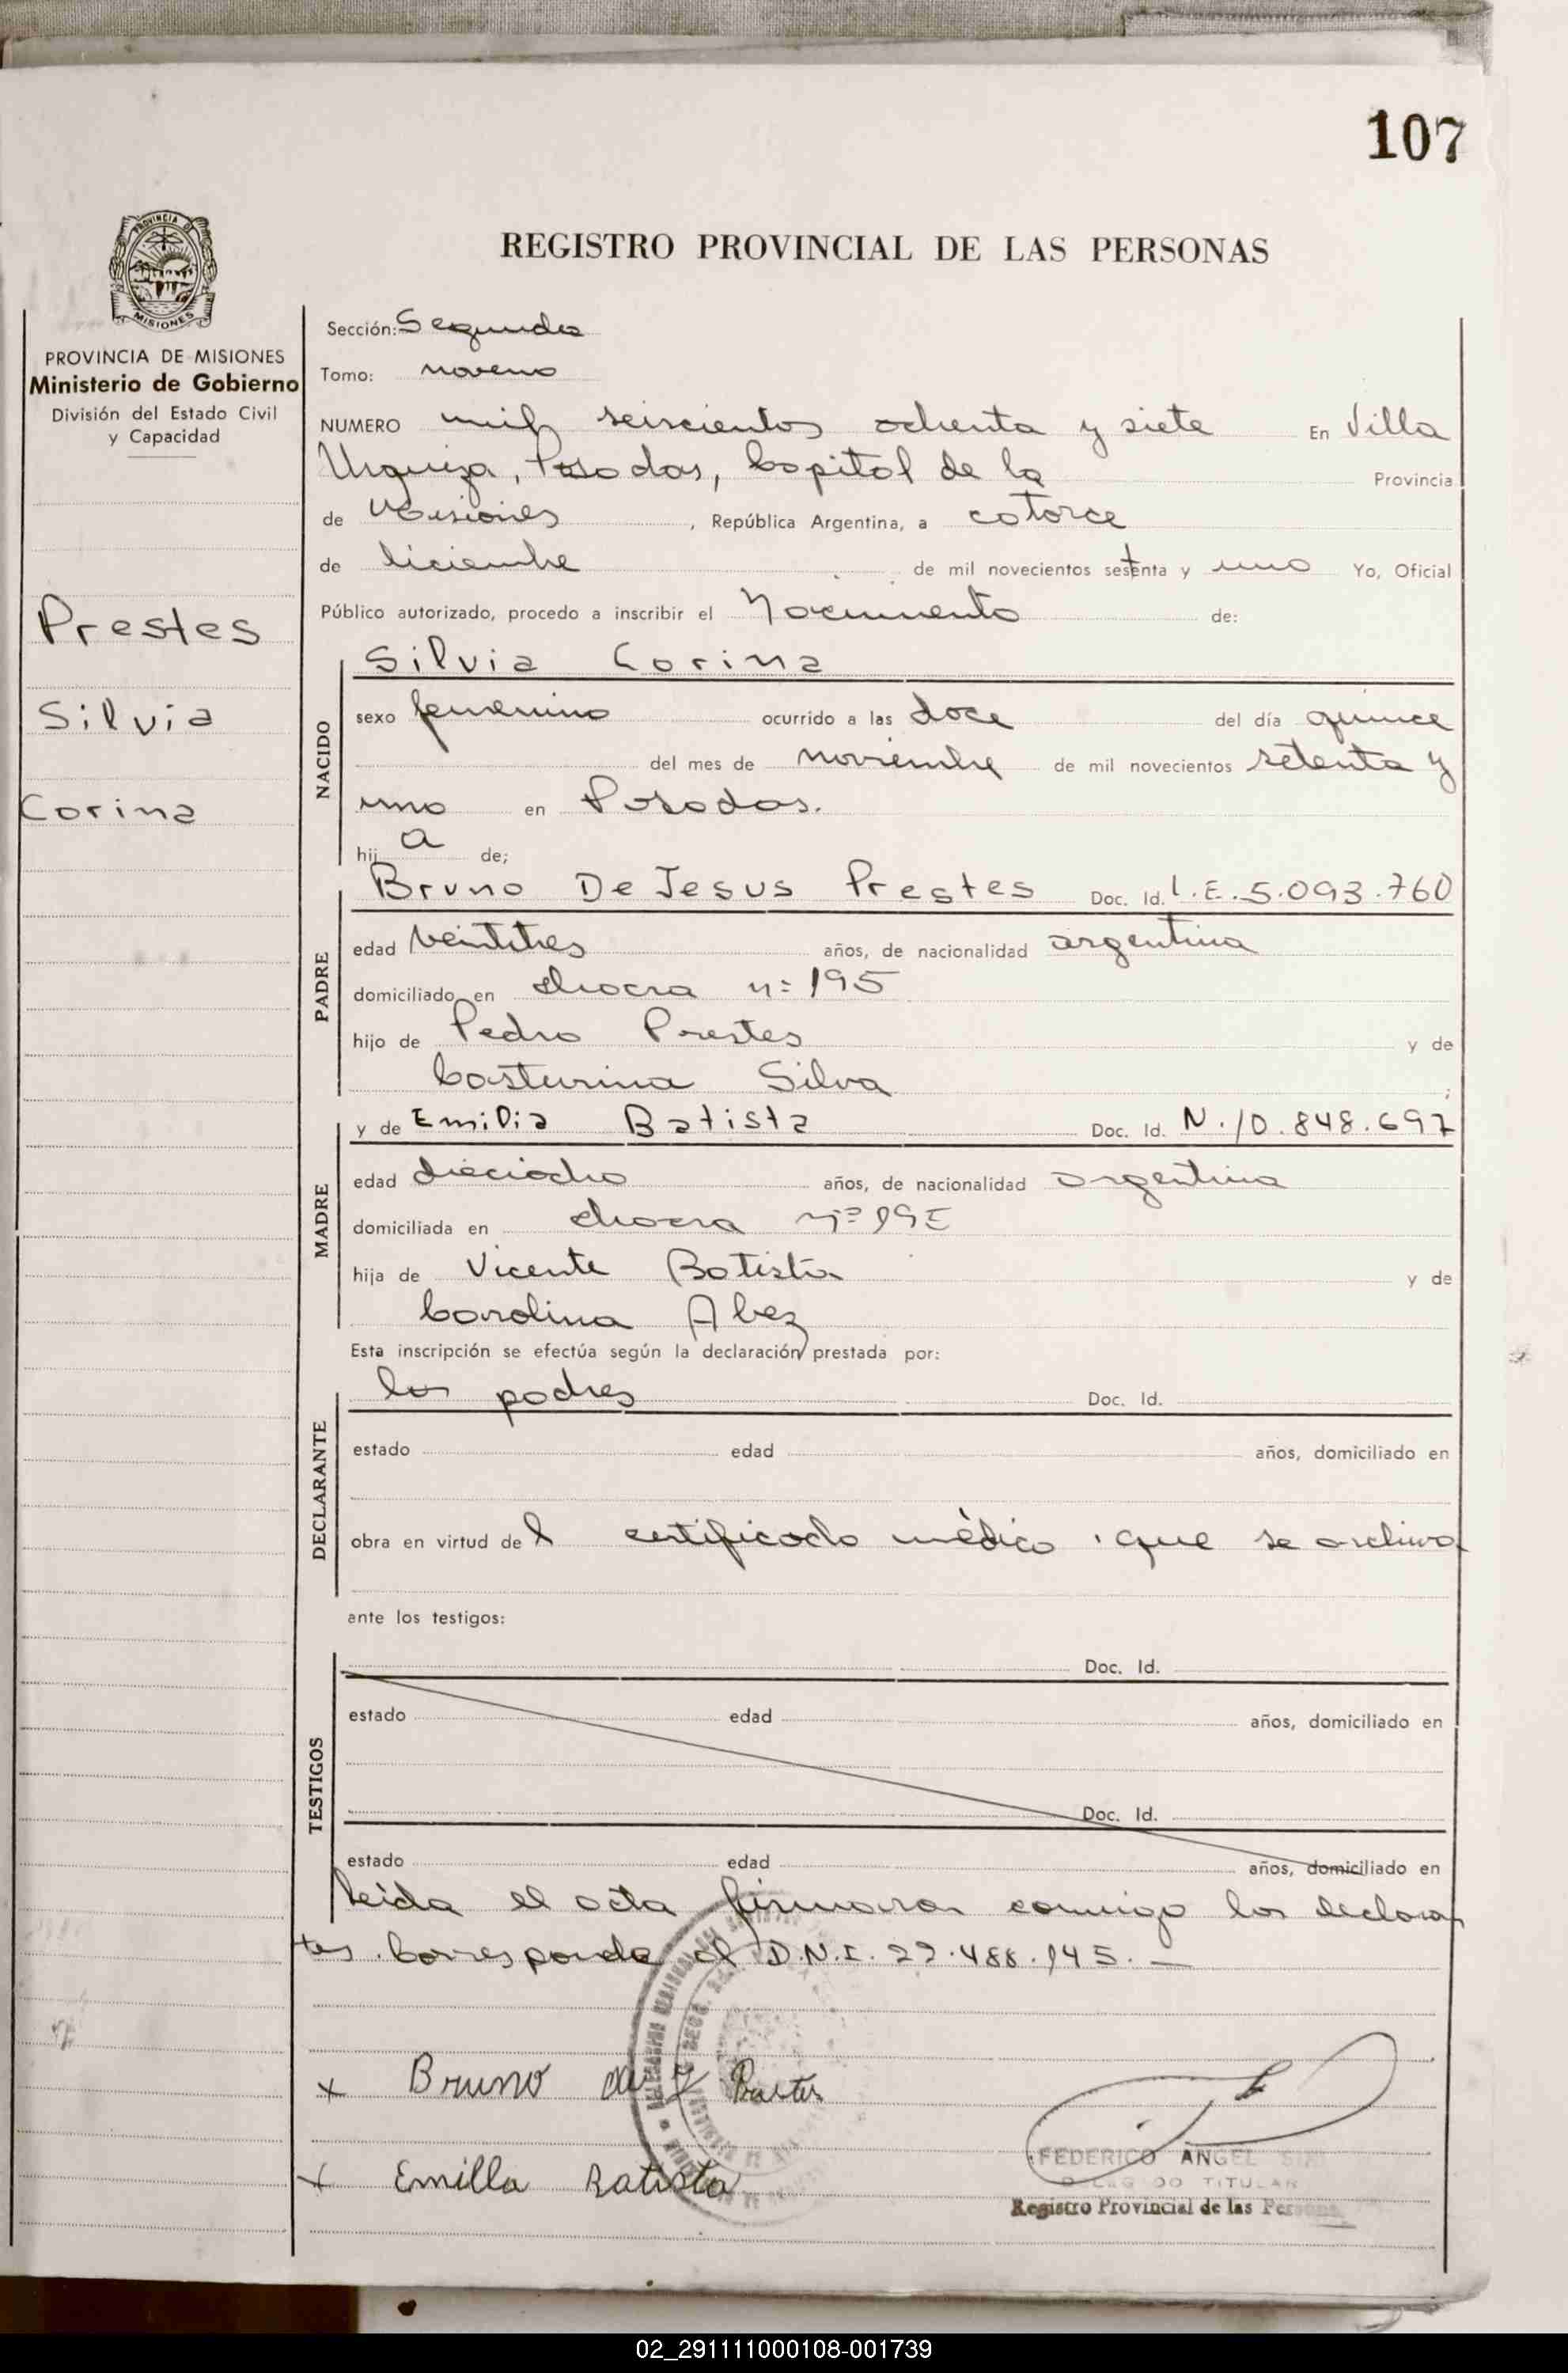 107
PROVINCIA DE MISIONES
REGISTRO PROVINCIAL DE LAS PERSONAS
PROVINCIA DE MISIONES
Ministerio de Gobierno
División del Estado Civil
y Capacidad
Prestes
Silvia
Corina
Sección: Segunda
Tomo: noveno
NUMERO mil seiscientos ochenta y siete En Villa
Urquiza, Posadas, Capital de la Provincia
de Misiones, República Argentina, a catorce
de diciembre de mil novecientos setenta y uno Yo, Oficial
Público autorizado, procedo a inscribir el Nacimiento de:
NACIDO
Silvia Corina
sexo femenino ocurrido a las doce del día quince
del mes de noviembre de mil novecientos setenta y
uno en Posadas.
hij a de;
PADRE
Bruno De Jesus Prestes Doc. Id. L.E. 5.093.760
edad veintitres años, de nacionalidad argentina
domiciliado en chacra nº 195
hijo de Pedro Prestes y de
Casturina Silva;
MADRE
y de Emilia Batista Doc. Id. N. 10.848.697
edad dieciocho años, de nacionalidad argentina
domiciliada en chacra nº 195
hija de Vicente Batista y de
Carolina Abez
Esta inscripción se efectúa según la declaración prestada por:
DECLARANTE
los padres Doc. Id.
estado edad años, domiciliado en
obra en virtud de l certificado médico que se archiva
ante los testigos:
TESTIGOS
Doc. Id.
estado edad años, domiciliado en
Doc. Id.
estado edad años, domiciliado en
leida el acta firmaron conmigo los declaran
tes. Corresponde al D.N.I. 22.488.145.—
x Bruno de J Prestes
x Emilla Batista
FEDERICO ANGEL
TITULAR
Registro Provincial de las Personas
02_291111000108-001739